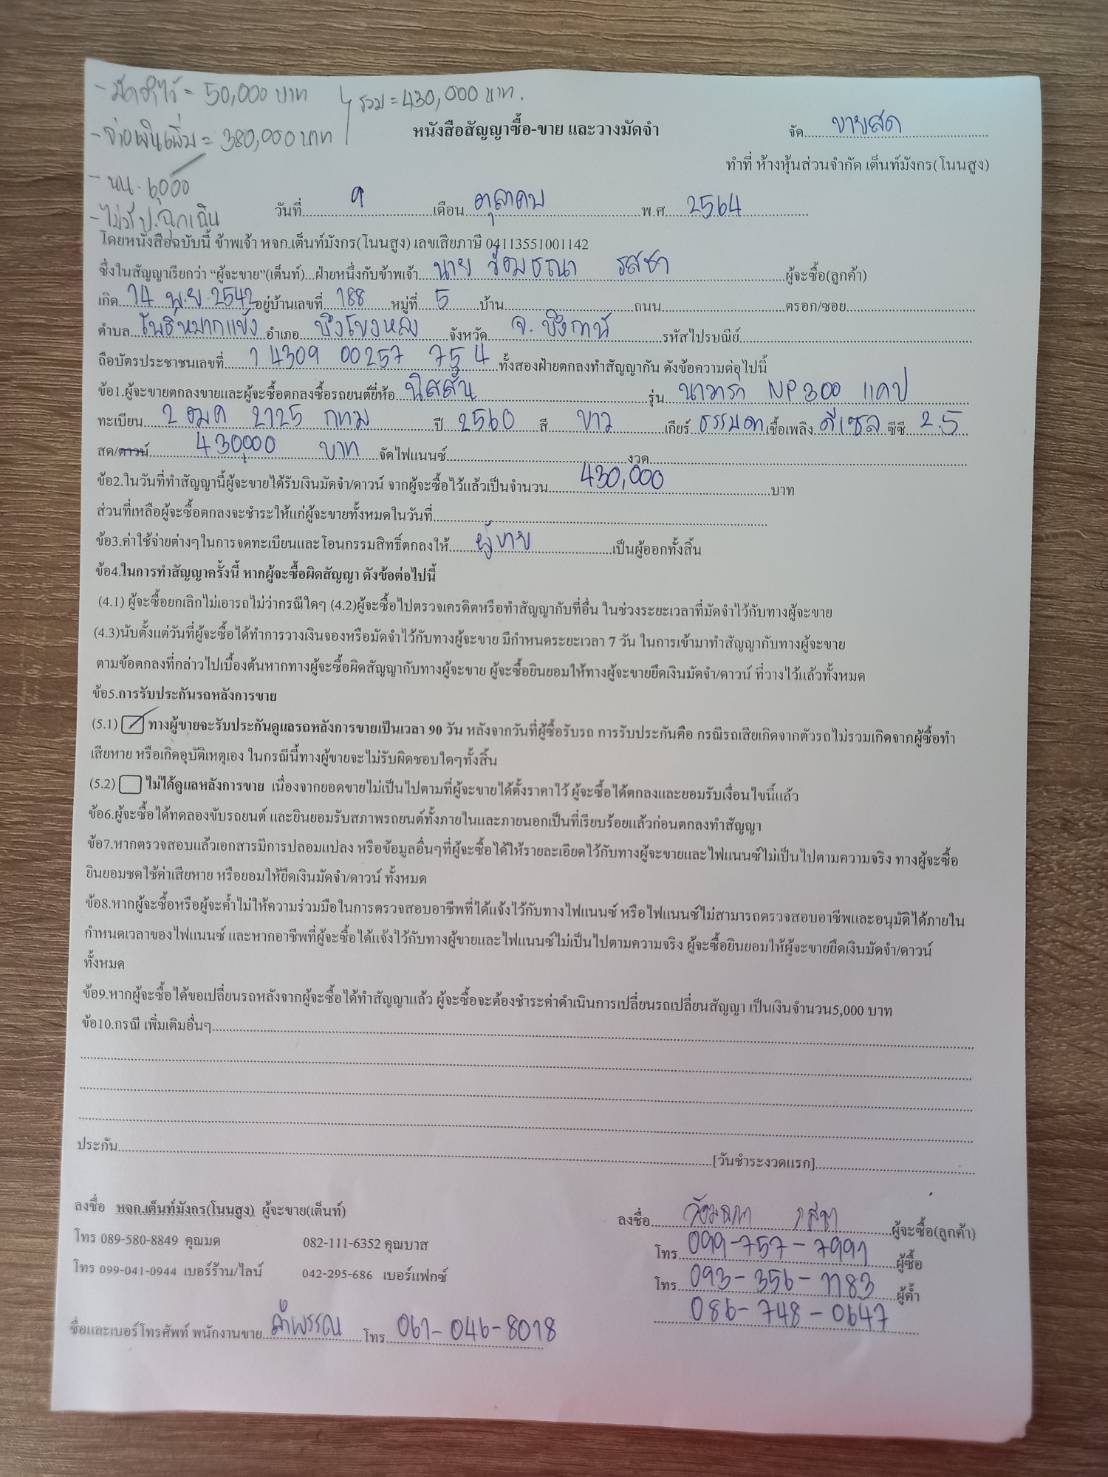 - มัดจำไว้ = 50,000 บาท
รวม = 430,000 บาท.
- จ่ายเงินเพิ่ม = 380,000 บาท
หนังสือสัญญาซื้อ-ขาย และวางมัดจำ
จัด....ขายสด
ทำที่ ห้างหุ้นส่วนจำกัด เต็นท์มังกร(โนนสูง)
- นน. 6,000
- ไม่รับ ป.ฉุกเฉิน
วันที่ 9 เดือน ตุลาคม พ.ศ. 2564
โดยหนังสือฉบับนี้ ข้าพเจ้า หจก.เต็นท์มังกร(โนนสูง) เลขเสียภาษี 04113551001142
ซึ่งในสัญญาเรียกว่า "ผู้จะขาย"(เต็นท์)...ฝ่ายหนึ่งกับข้าพเจ้า นาย รสชา ผู้จะซื้อ(ลูกค้า)
เกิด 14 พ.ย. 2542 อยู่บ้านเลขที่ 188 หมู่ที่ 5 บ้าน ถนน ตรอก/ซอย
ตำบล โพธิ์หมากแข้ง อำเภอ บึงโขงหลง จังหวัด จ. บึงกาฬ รหัสไปรษณีย์
ถือบัตรประชาชนเลขที่ 1 4309 00257 75 4 ทั้งสองฝ่ายตกลงทำสัญญากัน ดังข้อความต่อไปนี้
ข้อ1.ผู้จะขายตกลงขายและผู้จะซื้อตกลงซื้อรถยนต์ยี่ห้อ นิสสัน รุ่น นาวารา NP300 แคป
ทะเบียน 2 ฒต 2125 กทม ปี 2560 สี ขาว เกียร์ ธรรมดา เชื้อเพลิง ดีเซล ซีซี 2.5
สด/ดาวน์ 430,000 บาท จัดไฟแนนซ์ งวด
ข้อ2.ในวันที่ทำสัญญานี้ผู้จะขายได้รับเงินมัดจำ/ดาวน์ จากผู้จะซื้อไว้แล้วเป็นจำนวน 430,000 บาท
ส่วนที่เหลือผู้จะซื้อตกลงจะชำระให้แก่ผู้จะขายทั้งหมดในวันที่
ข้อ3.ค่าใช้จ่ายต่างๆในการจดทะเบียนและโอนกรรมสิทธิ์ตกลงให้ ผู้ขาย เป็นผู้ออกทั้งสิ้น
ข้อ4.ในการทำสัญญาครั้งนี้ หากผู้จะซื้อผิดสัญญา ดังข้อต่อไปนี้
(4.1) ผู้จะซื้อยกเลิกไม่เอารถไม่ว่ากรณีใดๆ (4.2)ผู้จะซื้อไปตรวจเครดิตหรือทำสัญญากับที่อื่น ในช่วงระยะเวลาที่มัดจำไว้กับทางผู้จะขาย
(4.3)นับตั้งแต่วันที่ผู้จะซื้อได้ทำการวางเงินจองหรือมัดจำไว้กับทางผู้จะขาย มีกำหนดระยะเวลา 7 วัน ในการเข้ามาทำสัญญากับทางผู้จะขาย
ตามข้อตกลงที่กล่าวไปเบื้องต้นหากทางผู้จะซื้อผิดสัญญากับทางผู้จะขาย ผู้จะซื้อยินยอมให้ทางผู้จะขายยึดเงินมัดจำ/ดาวน์ ที่วางไว้แล้วทั้งหมด
ข้อ5.การรับประกันรถหลังการขาย
(5.1) ทางผู้ขายจะรับประกันดูแลรถหลังการขายเป็นเวลา 90 วัน หลังจากวันที่ผู้ซื้อรับรถ การรับประกันคือ กรณีรถเสียเกิดจากตัวรถไม่รวมเกิดจากผู้ซื้อทำ
เสียหาย หรือเกิดอุบัติเหตุเอง ในกรณีนี้ทางผู้ขายจะไม่รับผิดชอบใดๆทั้งสิ้น
(5.2) ไม่ได้ดูแลหลังการขาย เนื่องจากยอดขายไม่เป็นไปตามที่ผู้จะขายได้ตั้งราคาไว้ ผู้จะซื้อได้ตกลงและยอมรับเงื่อนไขนี้แล้ว
ข้อ6.ผู้จะซื้อได้ทดลองขับรถยนต์ และยินยอมรับสภาพรถยนต์ทั้งภายในและภายนอกเป็นที่เรียบร้อยแล้วก่อนตกลงทำสัญญา
ข้อ7.หากตรวจสอบแล้วเอกสารมีการปลอมแปลง หรือข้อมูลอื่นๆที่ผู้จะซื้อได้ให้รายละเอียดไว้กับทางผู้จะขายและไฟแนนซ์ไม่เป็นไปตามความจริง ทางผู้จะซื้อ
ยินยอมชดใช้ค่าเสียหาย หรือยอมให้ยึดเงินมัดจำ/ดาวน์ ทั้งหมด
ข้อ8.หากผู้จะซื้อหรือผู้จะค้ำไม่ให้ความร่วมมือในการตรวจสอบอาชีพที่ได้แจ้งไว้กับทางไฟแนนซ์ หรือไฟแนนซ์ไม่สามารถตรวจสอบอาชีพและอนุมัติได้ภายใน
กำหนดเวลาของไฟแนนซ์ และหากอาชีพที่ผู้จะซื้อได้แจ้งไว้กับทางผู้ขายและไฟแนนซ์ไม่เป็นไปตามความจริง ผู้จะซื้อยินยอมให้ผู้จะขายยึดเงินมัดจำ/ดาวน์
ทั้งหมด
ข้อ9.หากผู้จะซื้อได้ขอเปลี่ยนรถหลังจากผู้จะซื้อได้ทำสัญญาแล้ว ผู้จะซื้อจะต้องชำระค่าดำเนินการเปลี่ยนรถเปลี่ยนสัญญา เป็นเงินจำนวน5,000 บาท
ข้อ10.กรณี เพิ่มเติมอื่นๆ
ประกัน [วันชำระงวดแรก]
ลงชื่อ หจก.เต็นท์มังกร(โนนสูง) ผู้จะขาย(เต็นท์)
ลงชื่อ รสชา ผู้จะซื้อ(ลูกค้า)
โทร 089-580-8849 คุณมด 082-111-6352 คุณบาส
โทร 099-757-7991 ผู้ซื้อ
โทร 099-041-0944 เบอร์ร้าน/ไลน์ 042-295-686 เบอร์แฟกซ์
โทร 093-356-1183 ผู้ค้ำ
086-748-0647
ชื่อและเบอร์โทรศัพท์ พนักงานขาย คำพรรณ โทร 061-046-8018